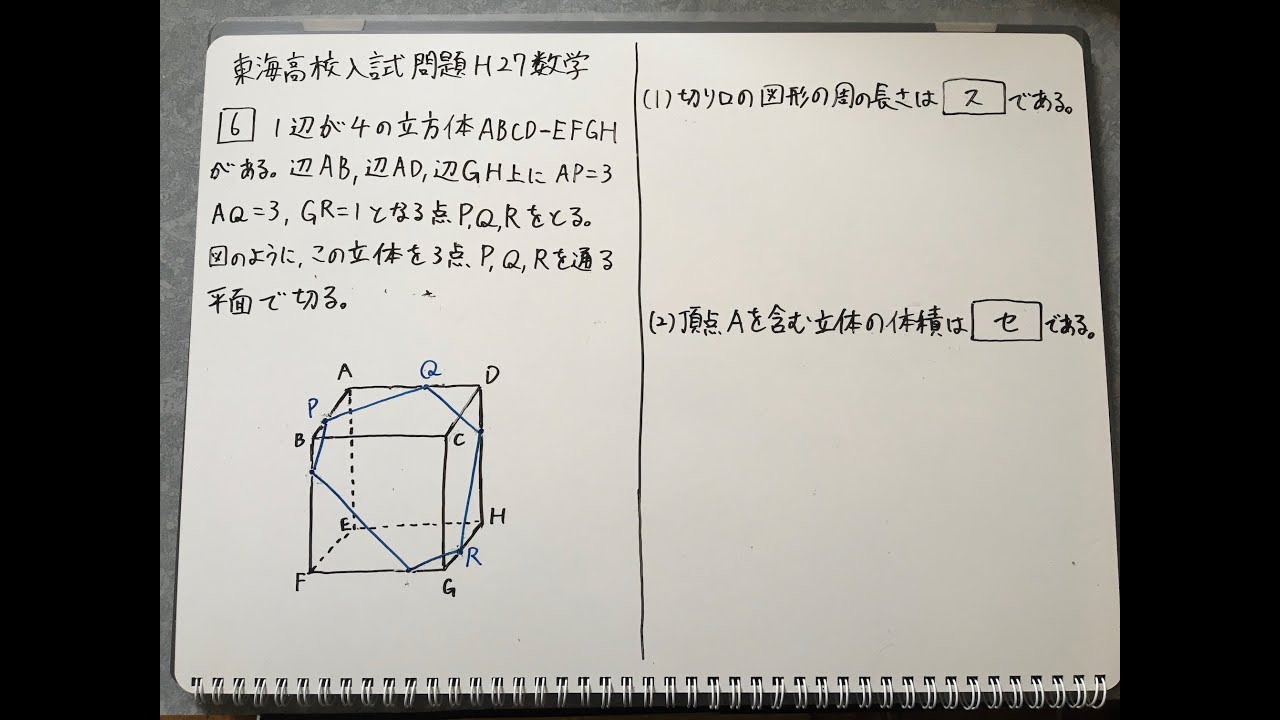 東海高校入試問題H27数学
6 1辺が4の立方体ABCD-EFGH
がある。辺AB,辺AD,辺GH上にAP=3
AQ=3, GR=1となる点P,Q,Rをとる。
図のように,この立体を3点P,Q,Rを通る
平面で切る。
A Q D
P
B C
E H
R
F G
(1)切り口の図形の周の長さは ス である。
(2)頂点Aを含む立体の体積は セ である。